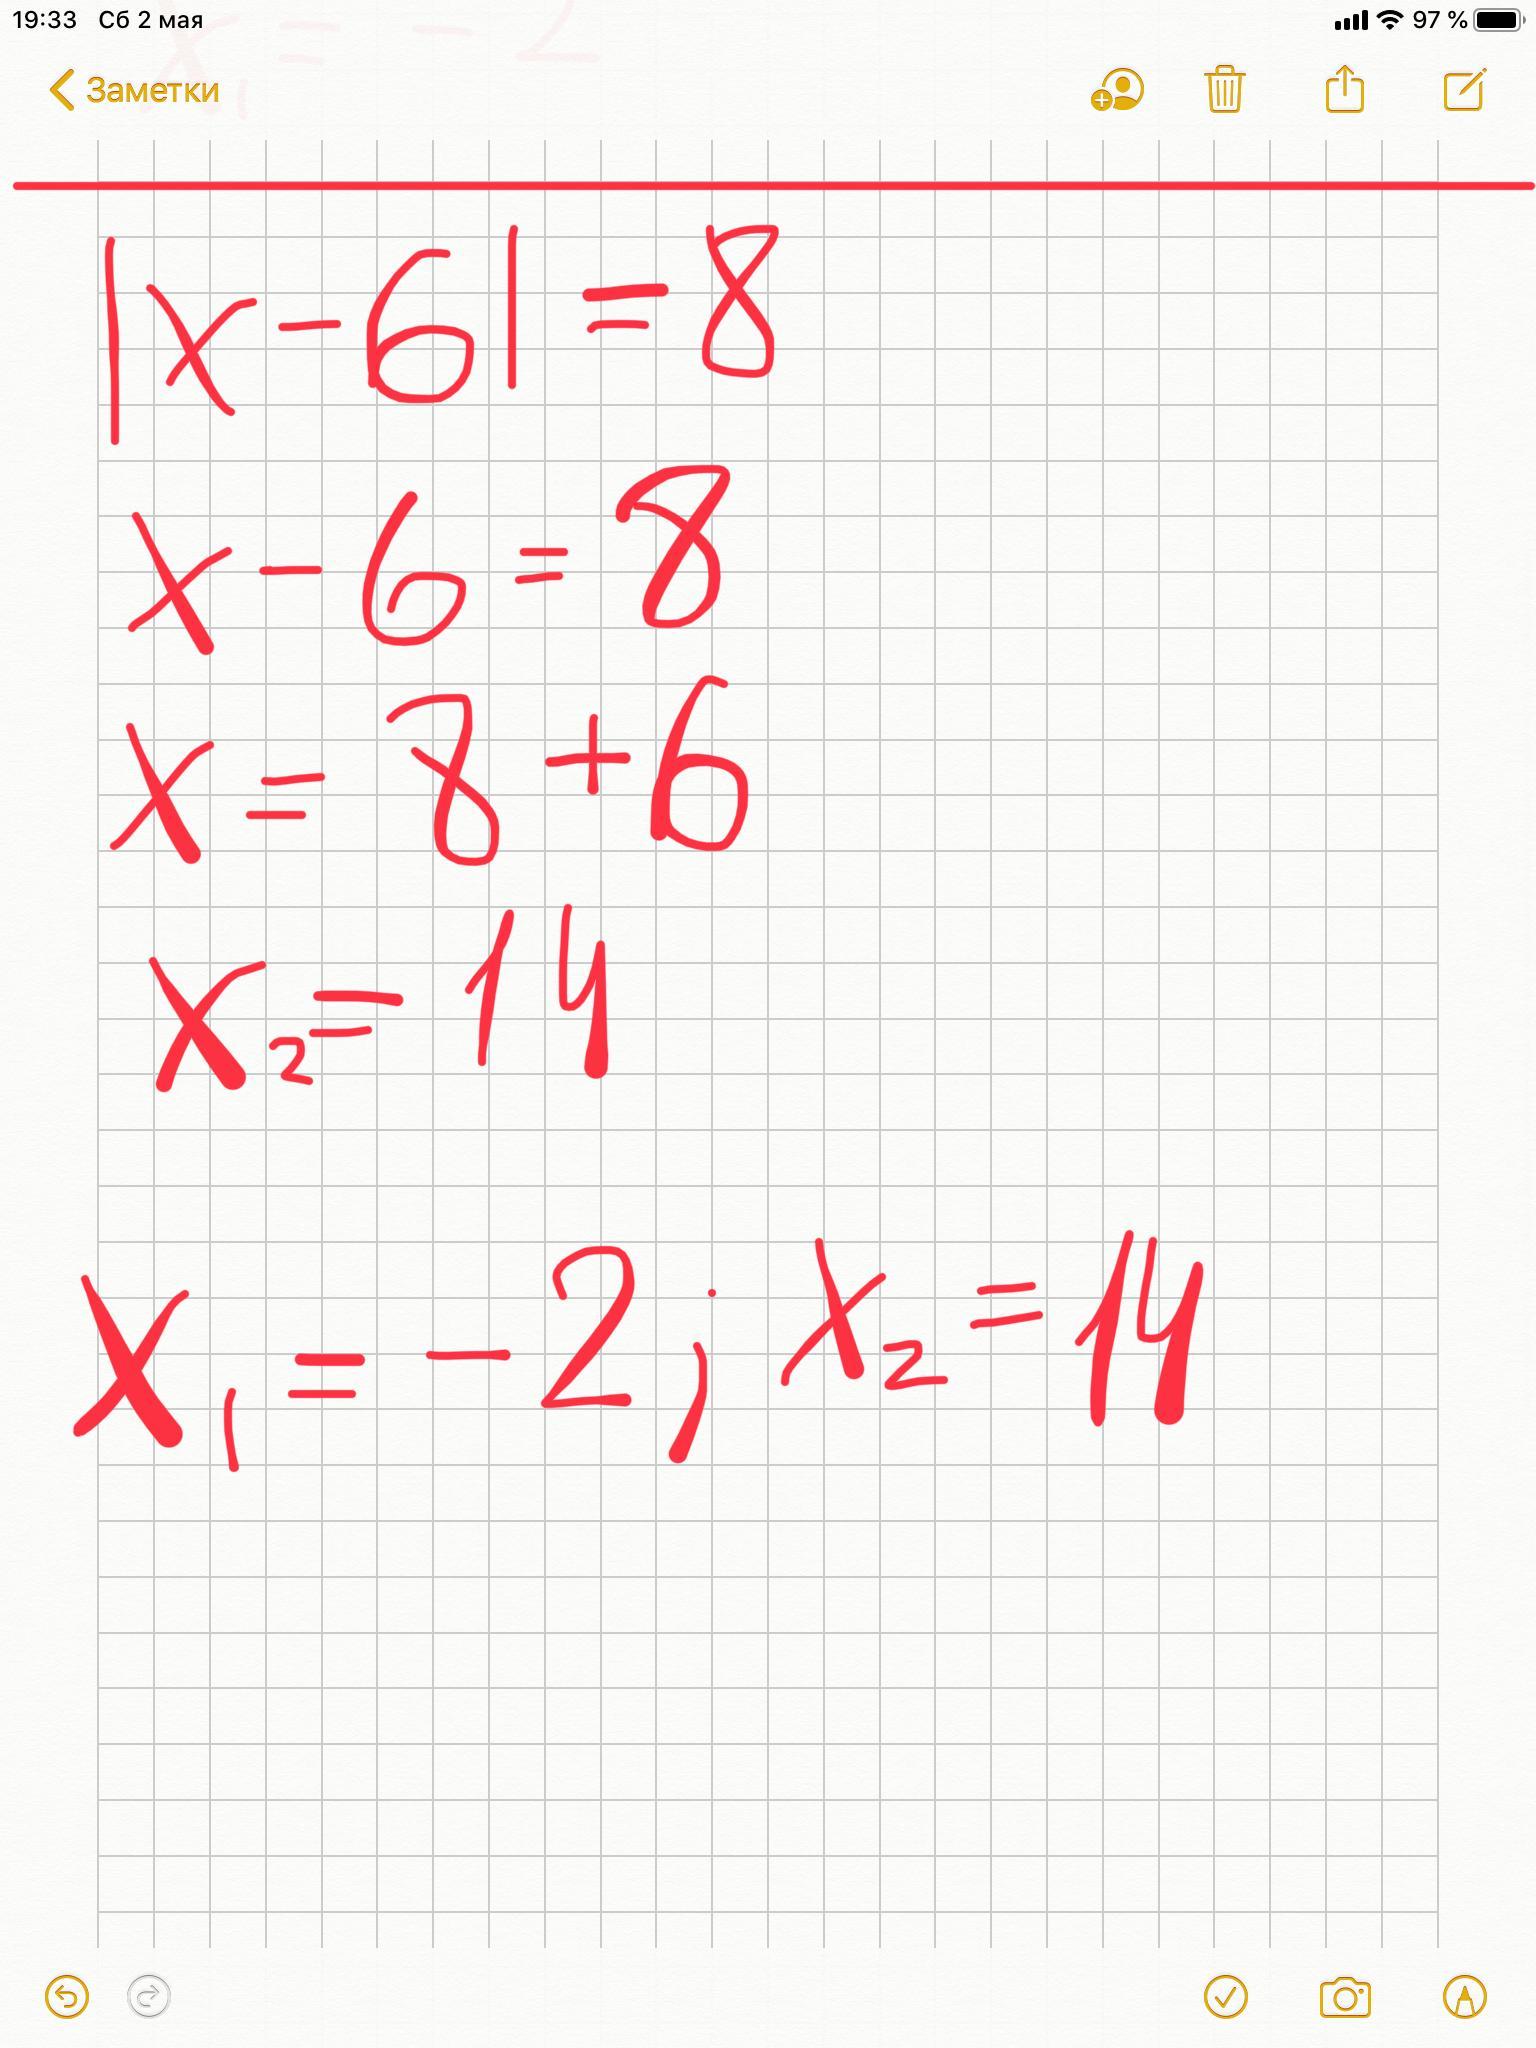 19:33 Сб 2 мая 97 %
x₁ = - 2
Заметки
|x - 6| = 8
x - 6 = 8
x = 8 + 6
x₂ = 14
x₁ = - 2 ; x₂ = 14